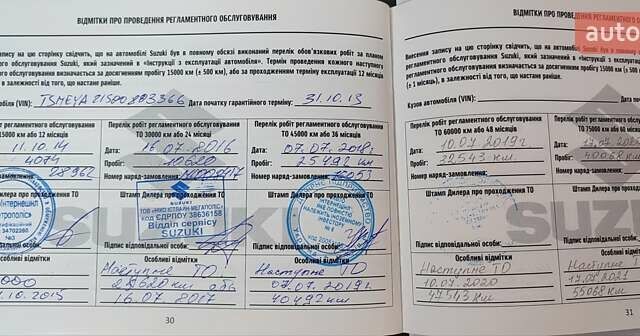 ВІДМІТКИ ПРО ПРОВЕДЕННЯ РЕГЛАМЕНТНОГО ОБСЛУГОВУВАННЯ
запису на цю сторінку свідчить, що на автомобілі Suzuki був в повному обсязі виконаний перелік обов'язкових робіт за планом
обслуговування Suzuki, який зазначений в «Інструкції з експлуатації автомобіля». Термін проведення кожного наступного
обслуговування визначається за досягненням пробігу 15000 км (± 500 км), або за проходженням терміну експлуатації 12 місяців
в залежності від того, що настане раніше.
(VIN): Дата початку гарантійного терміну: 31.10.13
Перелік робіт регламентного обслуговування
15000 км або 12 місяців
11.10.14
4074
28962
Штамп Дилера про проходження ТО
Підпис відповідальної особи:
Особливі відмітки
Перелік робіт регламентного обслуговування
ТО 30000 км або 24 місяців
Дата: 16.07.2016
Пробіг: 10620
Номер наряд-замовлення:
Штамп Дилера про проходження ТО
SUZUKI
ТОВ «НИКО ІСТЛАЙН-МЕГАПОЛІС»
КОД ЄДРПОУ 38636158
Відділ сервісу
SUZUKI
Підпис відповідальної особи:
Особливі відмітки
Наступне ТО
25620 км або
16.07.2017
Перелік робіт регламентного обслуговування
ТО 45000 км або 36 місяців
Дата: 07.07.2018г
Пробіг: 25492 км
Номер наряд-замовлення:
Штамп Дилера про проходження ТО
Підпис відповідальної особи:
Особливі відмітки
Наступне ТО
07.07.2019г
40492 км
30
ВІДМІТКИ ПРО ПРОВЕДЕННЯ РЕГЛАМЕНТНОГО
auto
Внесення запису на цю сторінку свідчить, що на автомобілі Suzuki був в повному
регламентного обслуговування Suzuki, який зазначений в «Інструкції з експлуатації
регламентного обслуговування визначається за досягненням пробігу 15000 км (± 500
(± 1 місяць), в залежності від того, що настане раніше.
Кузов автомобіля (VIN):
Перелік робіт регламентного обслуговування
ТО 60000 км або 48 місяців
Дата: 10.07.2019г
Пробіг: 32543 км.
Номер наряд-замовлення:
Штамп Дилера про проходження ТО
Підпис відповідальної особи:
Особливі відмітки
Наступне ТО
10.07.2020
47543 км
Перелік робіт регламентного
ТО 75000 км або 60
Дата:
Пробіг: 40068 км
Номер наряд-замовлення:
Штамп Дилера про проходження
Підпис відповідальної особи:
Особливі відмітки
Наступне ТО
55068 км
31